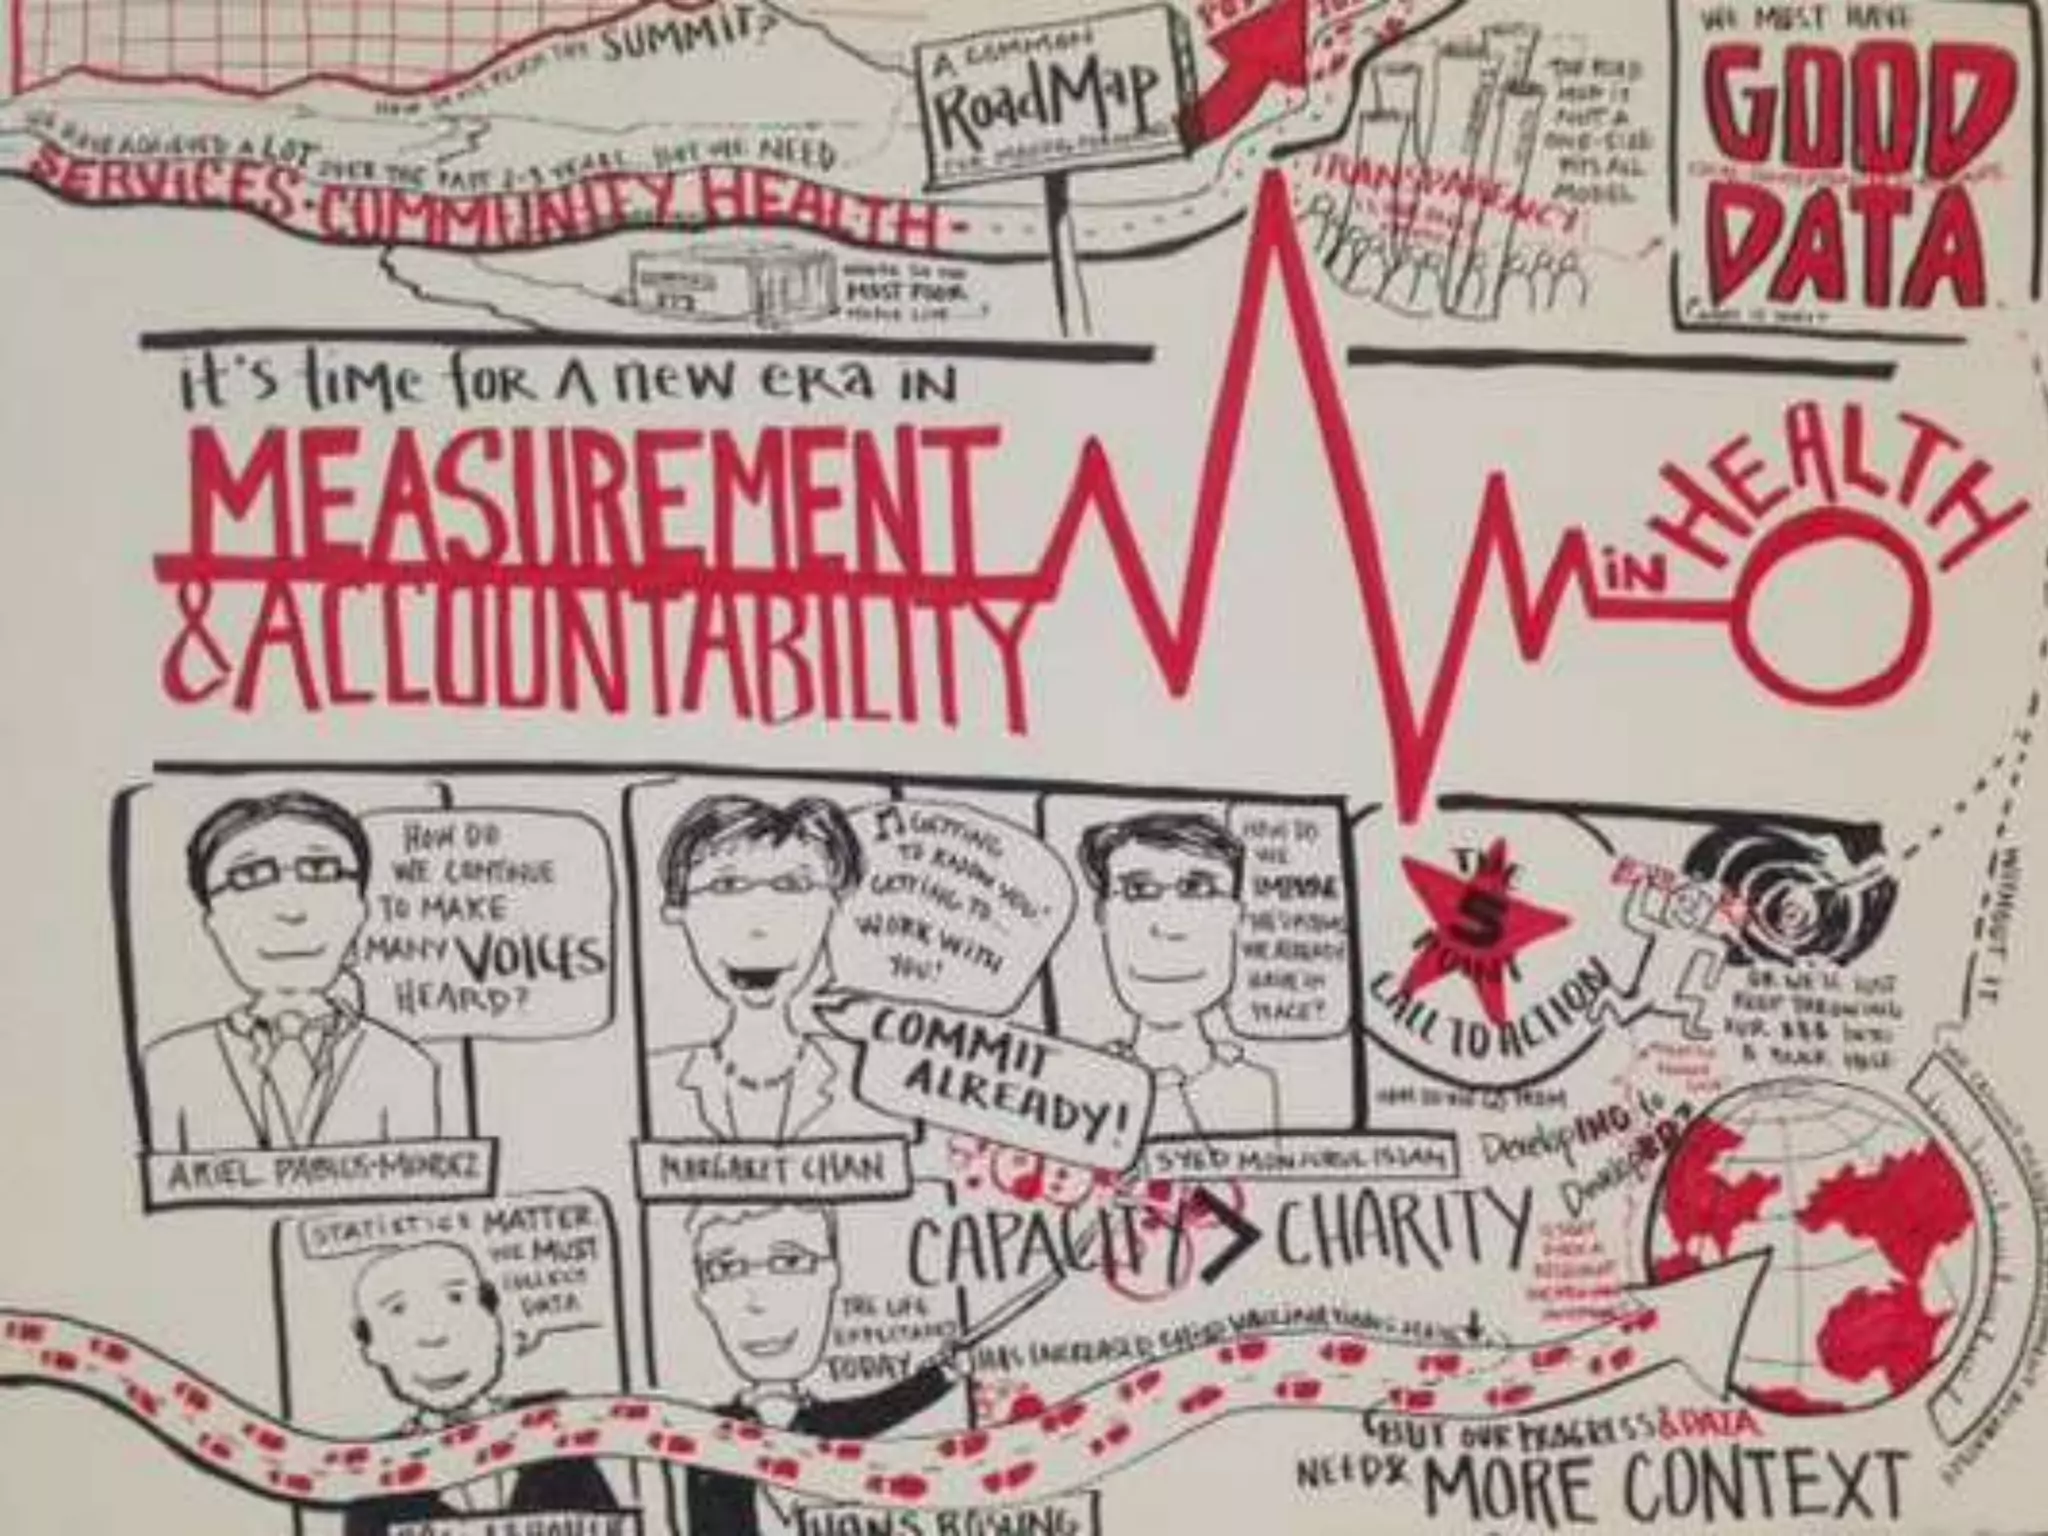 SUMMIT?
WE HAVE ACHIEVED A LOT OVER THE PAST 2-3 YEARS, BUT WE NEED
SERVICES · COMMUNITY HEALTH -
A COMMON
ROADMAP
THE ROAD
MAP IS
NOT A
ONE-SIZE
FITS ALL
MODEL
TRANSPARENCY
WE MUST HAVE
GOOD
DATA
MOST POOR
it's time for A new era in
MEASUREMENT
& ACCOUNTABILITY
in HEALTH
HOW DO
WE CONTINUE
TO MAKE
MANY VOICES
HEARD?
ARIEL PABLOS-MENDEZ
GETTING
TO KNOW YOU,
GETTING TO...
WORK WITH
YOU!
COMMIT
ALREADY!
MARGARET CHAN
HOW DO
WE
IMPROVE
WE ALREADY
HAVE IN
PLACE?
SYED MONJURUL ISLAM
THE
5
POINT
CALL TO ACTION
OR WE'LL JUST
KEEP THROWING
OUR $$$ INTO
A BLACK HOLE
WITHOUT IT
DevelopING to
DevelopED?
CAPACITY > CHARITY
STATISTICS MATTER.
WE MUST
COLLECT
DATA
THE LIFE
EXPECTANCY
TODAY
HAS INCREASED CHILD VACCINATIONS
HANS ROSLING
BUT OUR PROGRESS & DATA
NEEDS MORE CONTEXT